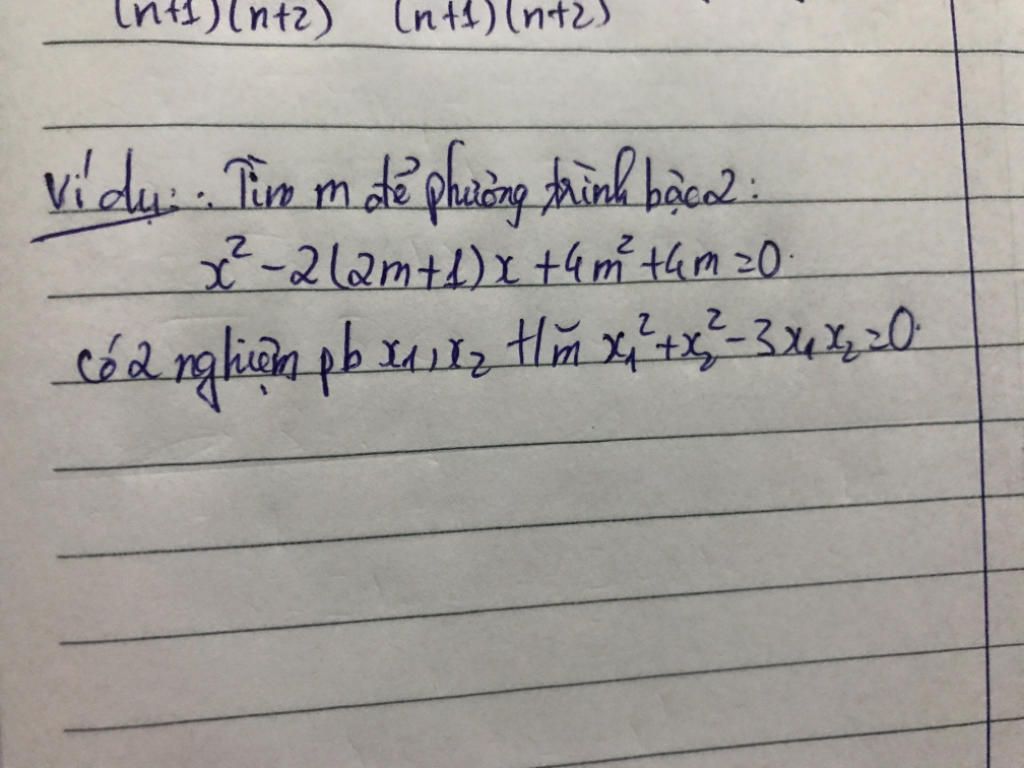 (n+1)(n+2) (n+1)(n+2)
Ví dụ: . Tìm m để phường trình bậc 2:
x² - 2(2m+1)x + 4m² + 4m = 0.
có 2 nghiệm pb x₁, x₂ t/m̃ x₁² + x₂² - 3x₁x₂ = 0.